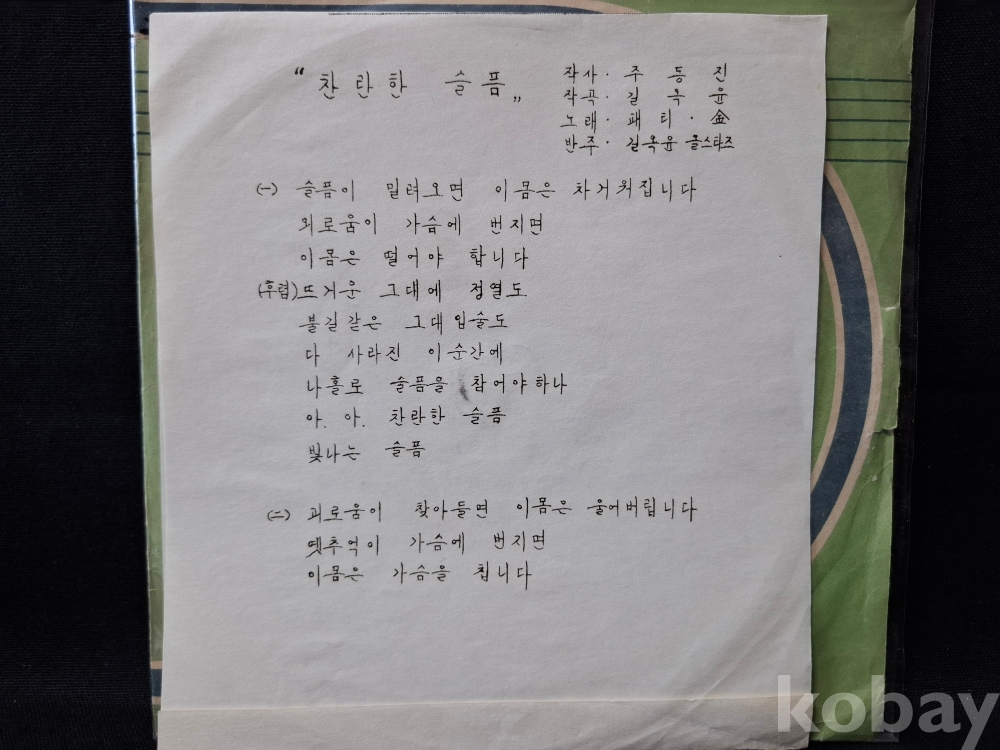 "찬란한 슬픔"
작사· 주동진
작곡· 길옥윤
노래· 패티·金
반주· 길옥윤 올스타즈
(一) 슬픔이 밀려오면 이몸은 차거워집니다
외로움이 가슴에 번지면
이몸은 떨어야 합니다
(후렴) 뜨거운 그대에 정열도
불길같은 그대입술도
다 사라진 이순간에
나홀로 슬픔을 참어야하나
아. 아. 찬란한 슬픔
빛나는 슬픔
(二) 괴로움이 찾아들면 이몸은 울어버립니다
옛추억이 가슴에 번지면
이몸은 가슴을 칩니다
kobay